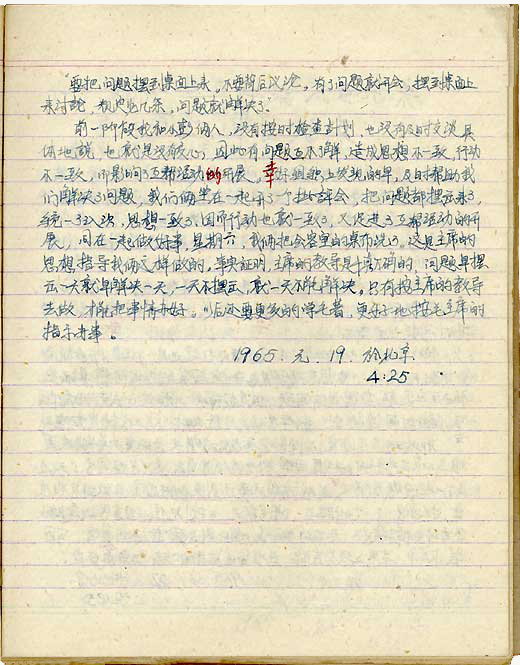 “要把问题摆到桌面上来,不要背后议论。有了问题就开会,摆到桌面上
来讨论,规定它几条,问题就解决了。”
前一阶段我和小彭俩人,没有按时检查计划,也没有及时交谈,具
体地说,也就是没有交心,因此有问题互不了解,造成思想不一致,行动
不一致,而影响了互帮活动的开展。幸好组织上发现的早,及时帮助我
们解决了问题,我们俩坐在一起开了个批评会,把问题都摆出来了,
统一了认识,思想一致了,因而行动也就一致了,又促进了互帮活动的开
展,同在一起做好事,星期六,我俩把会客室的桌布洗了,这是主席的
思想指导我俩这样做的,事实证明,主席的教导是千真万确的,问题早摆
出一天就早解决一天,一天不摆出,就一天不能解决。只有按主席的教导
去做,才能把事情办好。以后还要更多的学毛著,更好地按毛主席的
指示办事。
1965.元.19.於北京
4:25